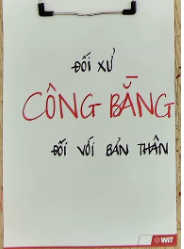 ĐỐI XỬ
CÔNG BẰNG
ĐỐI VỚI BẢN THÂN